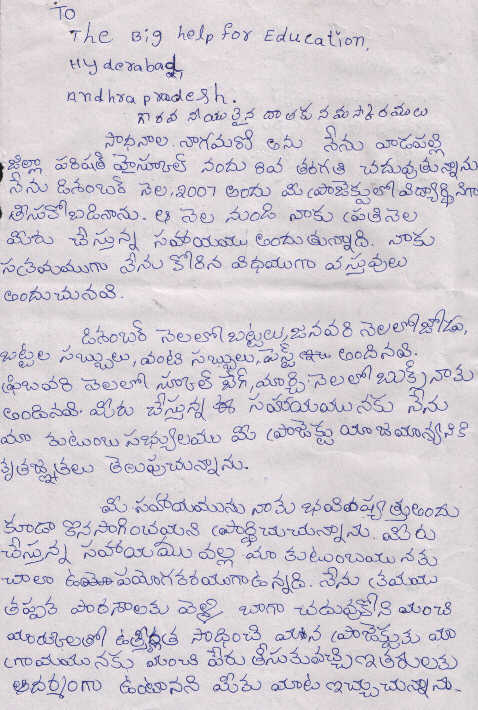 To
The Big help for Education,
Hyderabad,
Andhra pradesh.
గౌరవనీయులైన దాతకు నమస్కారములు
సాధనాల. నాగమణి అను నేను వాడపల్లి
జిల్లా పరిషత్ హైస్కూల్ నందు 8వ తరగతి చదువుతున్నాను
నేను డిశంబర్ నెల, 2007 అందు మీ ప్రాజెక్టులో విద్యార్థినిగా
తీసుకోబడినాను. ఆ నెల నుండి నాకు ప్రతినెల
మీరు చేస్తున్న సహాయము అందుతున్నాది. నాకు
సక్రమముగా నేను కోరిన విధముగా వస్తువులు
అందుచున్నవి.
డిశంబర్ నెలలో బట్టలు, జనవరి నెలలో జోడు,
బట్టల సబ్బులు, వంటి సబ్బులు, పేస్ట్ అందినవి.
ఫిబ్రవరి నెలలో స్కూల్ బేగ్, మార్చి నెలలో బుక్స్ నాకు
అందినవి. మీరు చేస్తున్న ఈ సహాయమునకు నేను
మా కుటుంబ సభ్యులము మీ ప్రాజెక్టు యాజమాన్యానికి
కృతజ్ఞతలు తెలుపుచున్నాను.
మీ సహాయమును నాకు భవిష్యత్తు అందు
కూడా కొనసాగించమని ప్రార్థిచుచున్నాను. మీరు
చేస్తున్న సహాయము వల్ల మా కుటుంబమునకు
చాలా ఉపయోగకరముగా ఉన్నది. నేను క్రమము
తప్పక పాఠశాలకు వెళ్లి బాగా చదువుకొని మంచి
మార్కులతో ఉత్తీర్ణత సాధించి మన ప్రాజెక్టుకు మా
గ్రామమునకు మంచి పేరు తీసుకువచ్చి ఇతరులకు
ఆదర్శంగా ఉంటానని మీకు మాట ఇచ్చుచున్నాను.